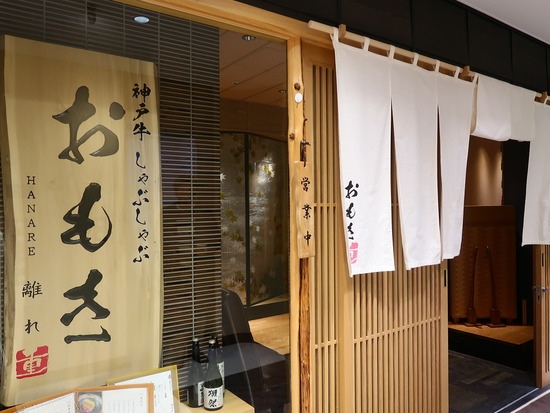 神戸牛しゃぶしゃぶ
おもき
HANARE
離れ
重
営業中
おもき
重
獺祭